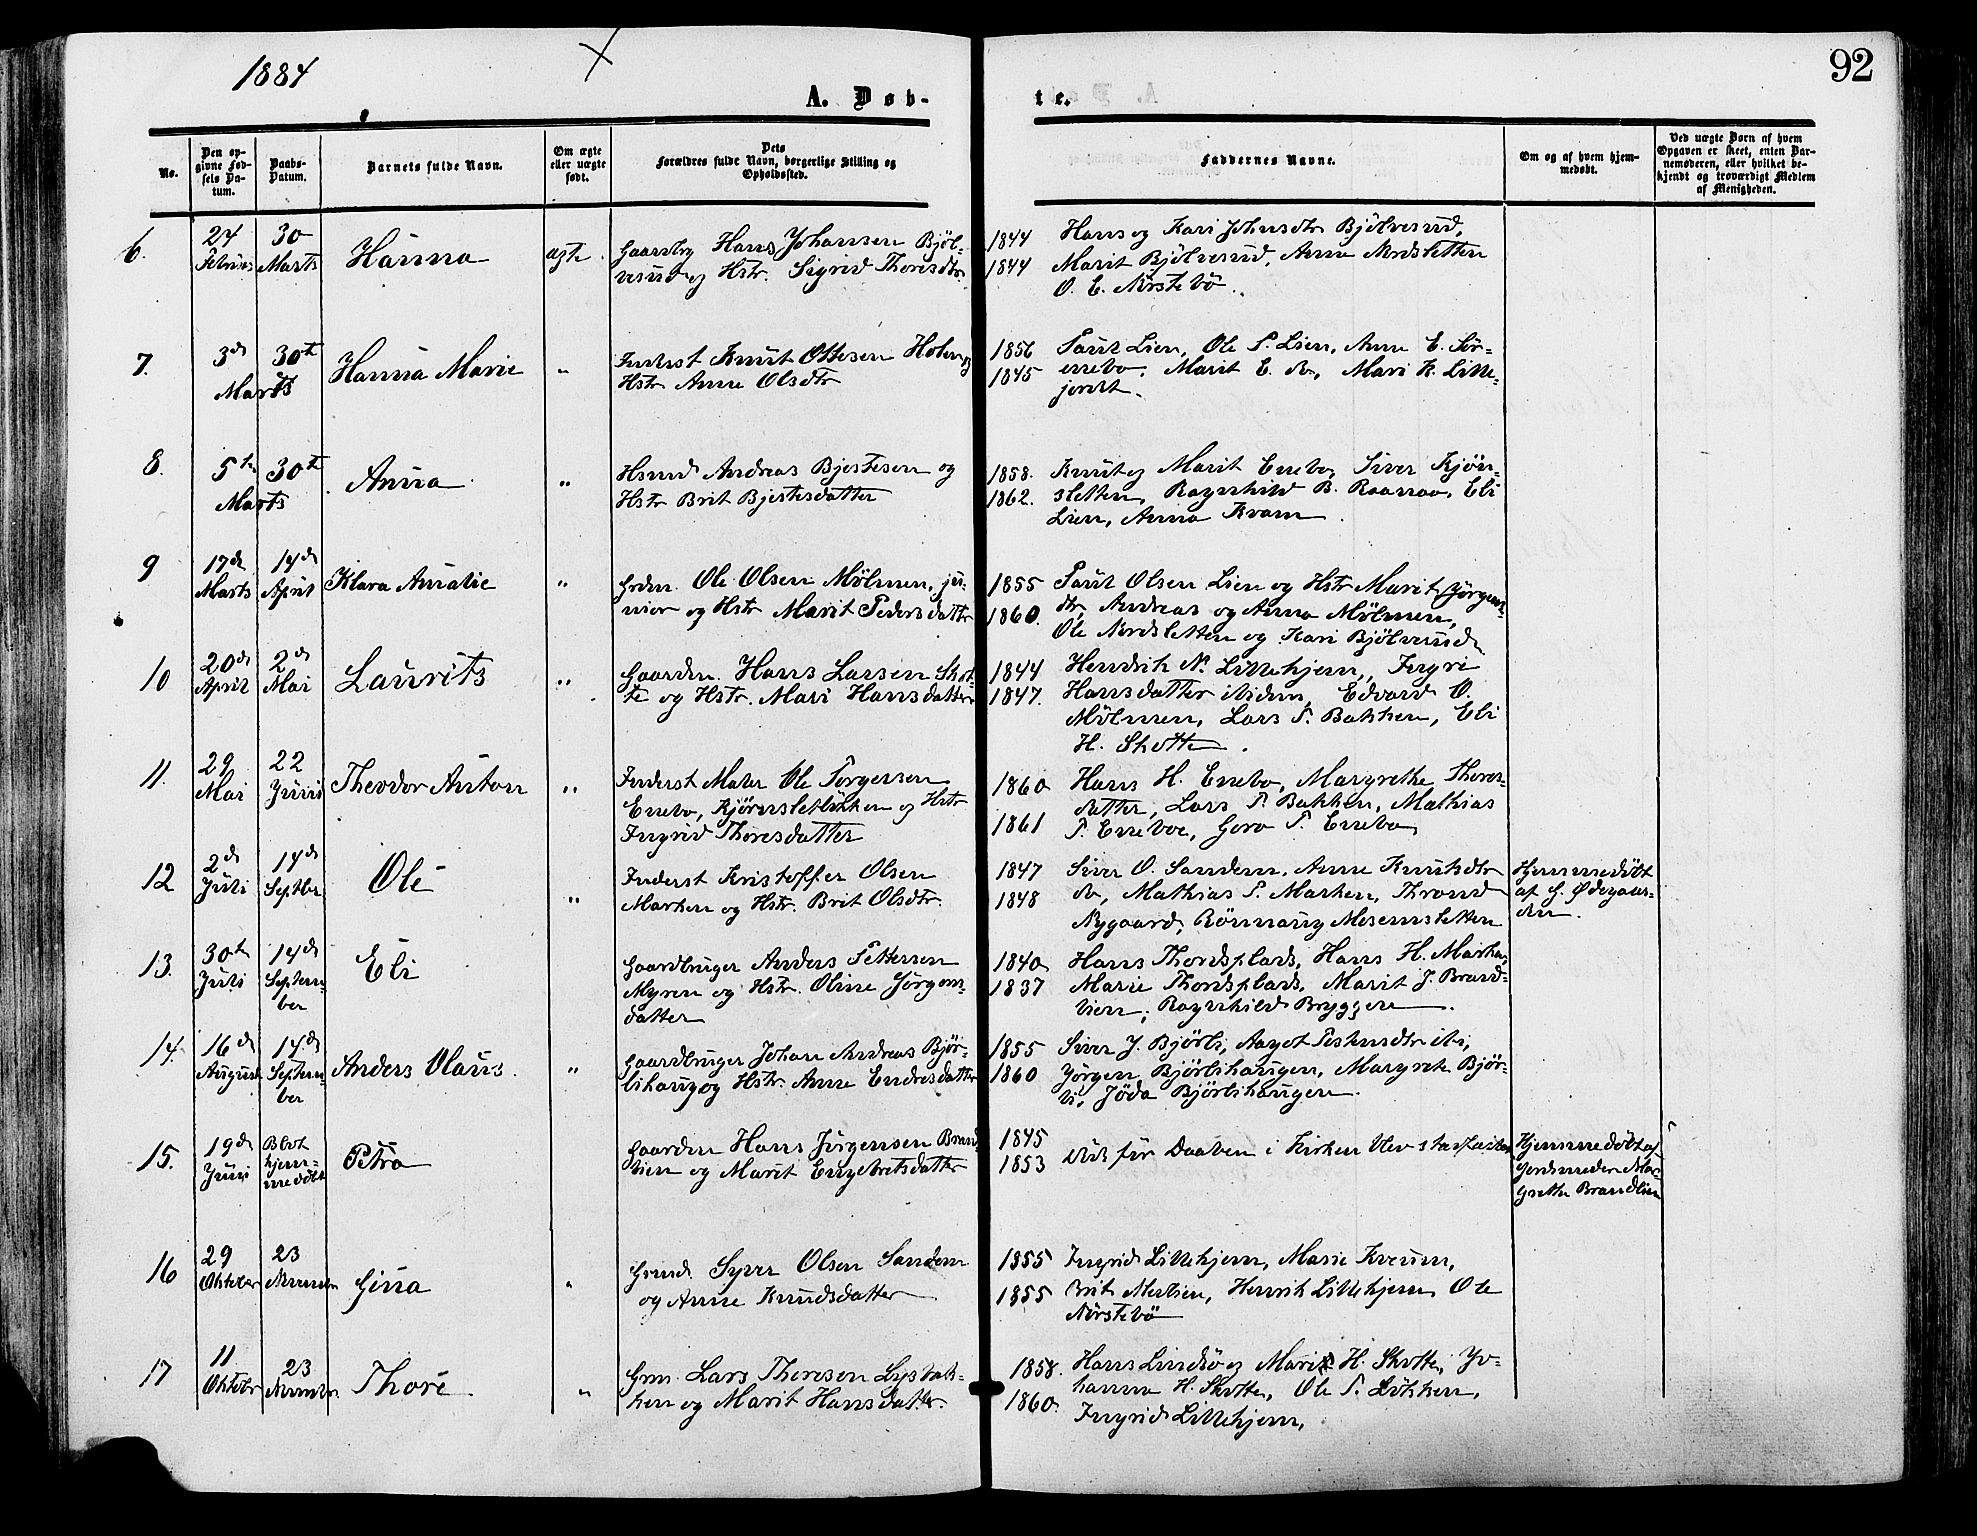 1884
92
A. Døb-
te.
No.
Den op-
givne Fød-
sels Da-
tum.
Daabs-
Datum.
Barnets fulde Navn.
Om ægte
eller uægte
født.
Dets
Forældres fulde Navn, borgerlige Stilling og
Opholdssted.
Faddernes Navne.
Om og af hvem hjem-
medøbt.
Ved uægte Børn af hvem
Opgaven er skeet, enten Bar-
nemoderen, eller hvilket be-
kjendt og troværdigt Medlem
af Menigheden.
6.
24
30
Marts
Hanna
ægte
Hans Johansen Bjöl-
vesud og Hstr. Sigrid Thoresdtr.
1844
1844
Hans og Kari Johnsdtr Bjölvesud,
Marit Bjölvesud, Anne Nordsletten
O. E. Nörstebö.
7.
3d
30te
Marts
Hanna Marie
"
Inderst Knut Ottesen Holen og
Hstr Anne Olsdtr
1856
1845
Paul Lien, Ole P. Lien, Anne E.
Enebo, Marit E. do, Mari K. Lille-
jordet.
8.
5te
30te
Marts
Anna
"
Hsmd Andreas Bjestesen og
Hstr Brit Bjestesdatter
1858.
1862.
Knut og Marit Enebo, Siver Kjörn-
sletten, Ragnhild B. Raanaa, Eli
Lien, Anna Kvam.
9
17de
14de
Marts
April
Klara Amalie
"
Grdm. Ole Olsen Mölmen, ju-
nior og Hstr Marit Pedersdatter
1855
1860.
Paul Olsen Lien og Hstr Marit Jörgens-
dtr, Andreas og Anna Mölmen,
Ole Nordsletten og Kari Bjölvesud
10
20de
2de
April
Mai
Laurits
"
Gaardm. Hans Larsen Skot-
te og Hstr. Mari Hansdatter
1844
1847.
Hendrik N. Lillehjem, Ingri
Hansdatter ibidem, Edvard O.
Mölmen, Lars P. Bakken, Eli
H. Skotte.
11.
29
22
Mai
Juni
Theodor Anton
"
Inderst Maler Ole Torgersen
Enebo, Kjörnsletlökken og Hstr
Ingrid Thoresdatter
1860
1861
Hans H. Enebo, Margrethe Thores-
datter, Lars P. Bakken, Mathias
P. Eneboe, Goro P. Enebo
12
2de
14de
Juli
Septber
Ole
"
Inderst Kristoffer Olsen
Marken og Hstr. Brit Olsdtr.
1847
1848
Siver O. Sandem, Anne Knutsdtr
do, Mathias P. Marken, Thrond
Nygaard, Rönnaug Mesemsletten
Hjemmedöbt
af G. Ödegaar-
den.
13.
30te
14de
Juli
Septem-
ber
Eli
Gaardbruger Anders Pettersen
Myren og Hstr. Oline Jörgens-
datter
1840
1837
Hans Thordsplads, Hans H. Marken,
Marie Thordsplads, Marit J. Brand-
lien, Ragnhild Bryggen.
14.
16de
14de
August
Septem-
ber
Anders Olaus.
"
Gaardbruger Johan Andreas Björ-
lihaug og Hstr. Anne Endresdatter
1855
1860
Siver J. Bjorli, Aagot ibi,
Jörgen Björlihaugen, Margrete Björ-
li, Jöda Björlihaugen.
15.
19de
Juni
Blot
hjem-
medöbt
Petra
Gaardm Hans Jörgensen Brand-
lien og Marit Engebretsdatter
1845
1853
Död för Daaben i Kirken blev stadfæstet
Hjemmedöbt af
Jordmoder Mar-
grethe Brandlien
16
29
23
Oktober
Novmber
Gina
"
Syver Olsen Sandem
og Anne Knudsdatter
1855
1855
Ingrid Lillehjem, Marie Kverum,
Brit Medlien, Henrik Lillehjem, Ole
Nörstebö
17
11
23
Oktobr
Novmbr
Thore.
"
Gmd. Lars Thoresen Lysbak-
ken og Marit Hansdatter
1858.
1860.
Hans Lindsö og Mari H. Skotte, Jo-
hanna H. Skotte, Ole P. Lökken,
Ingrid Lillehjem,